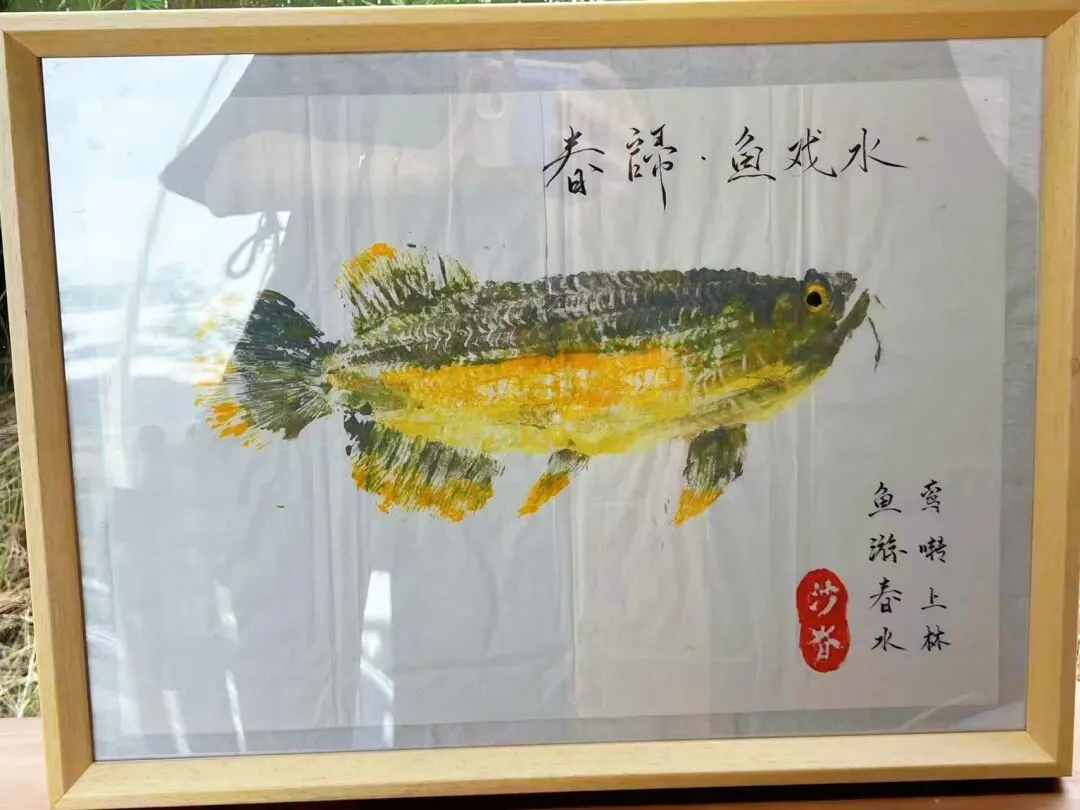 春歸·鱼戏水
鸾啭上林
鱼游春水
沙脊